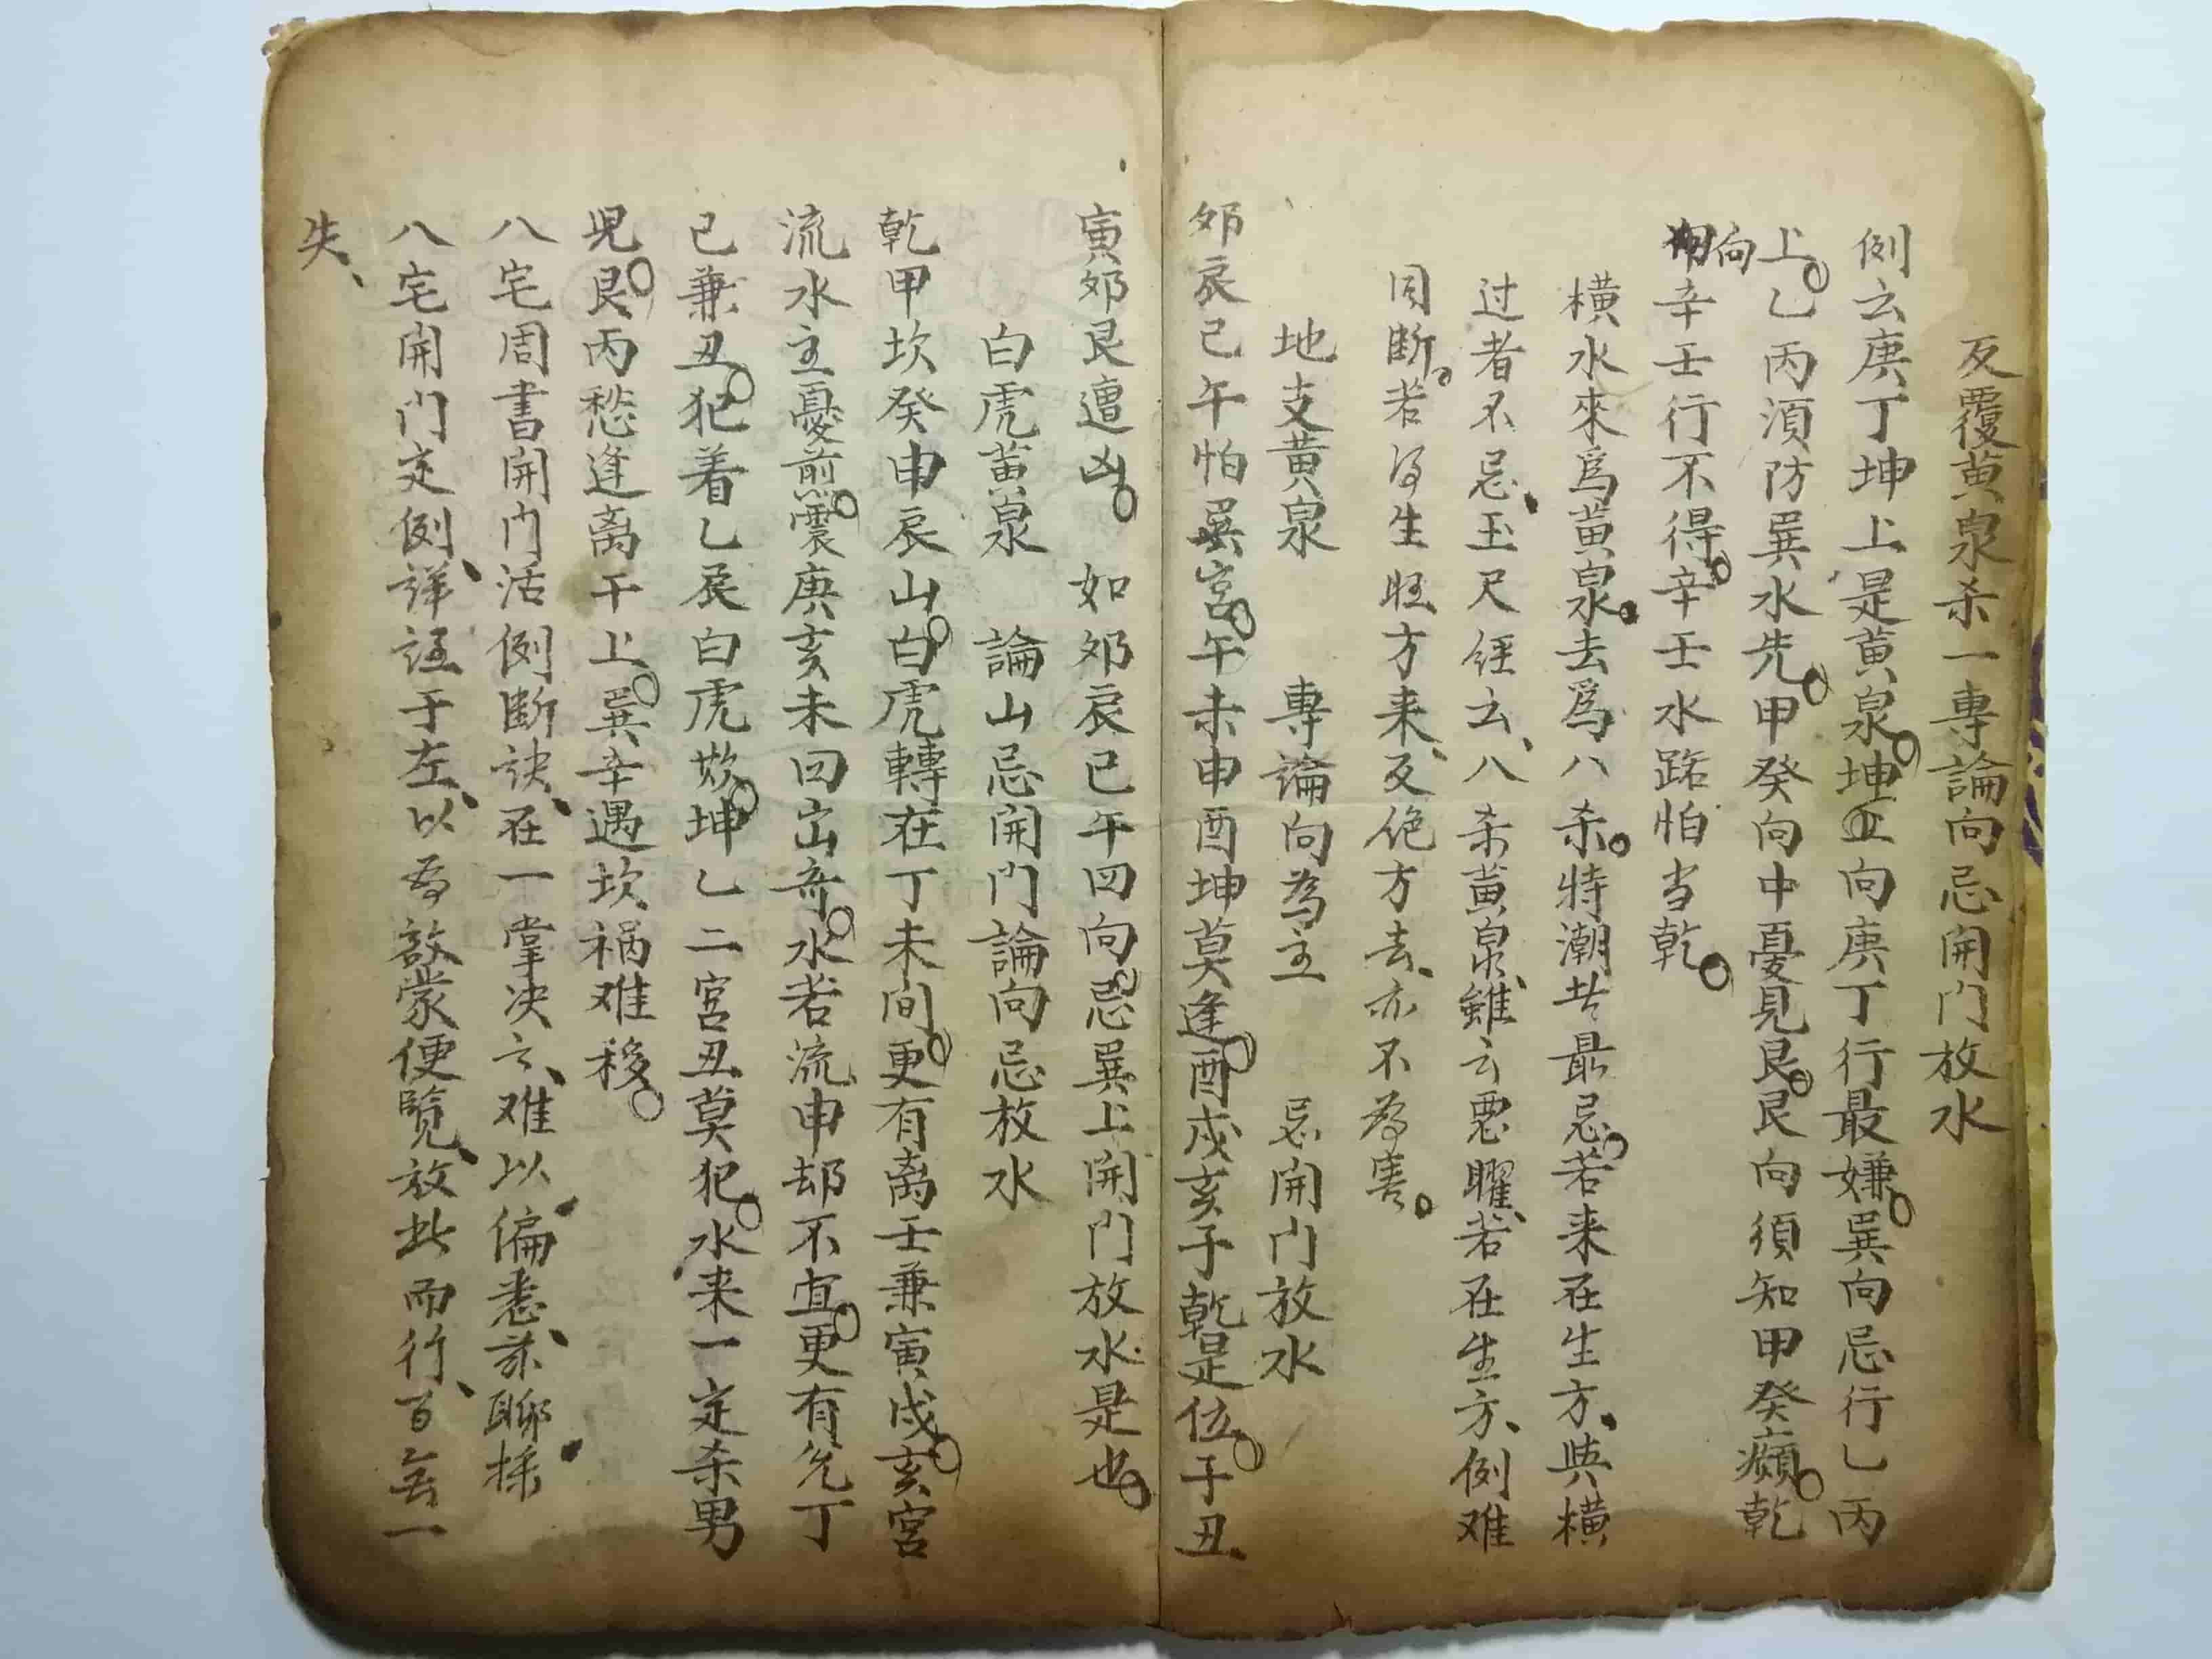 反覆黄泉杀一專論向忌開門放水
例云庚丁坤上是黄泉坤向庚丁行最嫌巽向忌行乙丙
上乙丙須防巽水先甲癸向中憂見艮艮向須知甲癸癲乾
向辛壬行不得辛壬水路怕当乾
横水來爲黄泉去爲八杀特潮者最忌若来在生方与横
过者不忌玉尺経云八杀黄泉雖云悪曜若在生方例难
同断若得生旺方来反绝方去亦不為害
地支黄泉 專論向為主 忌開门放水
夘辰巳午怕巽宮午未申酉坤莫逢酉戌亥子乾是位子丑
寅夘艮遭凶 如夘辰巳午四向忌巽上開门放水是也
白虎黄泉 論山忌開门論向忌放水
乾甲坎癸申辰山白虎轉在丁未间更有离壬兼寅戌亥宮
流水主憂煎震庚亥未四山奇水若流申却不宜更有兑丁
巳兼丑犯着乙辰白虎欺坤乙二宮丑莫犯水来一定杀男
児艮丙愁逢离干上巽辛遇坎祸难移
八宅周書開门活例断诀在一掌决云难以偏悉兹聊採
八宅開门定例詳註于左以為啟蒙便覧放此而行百無一
失